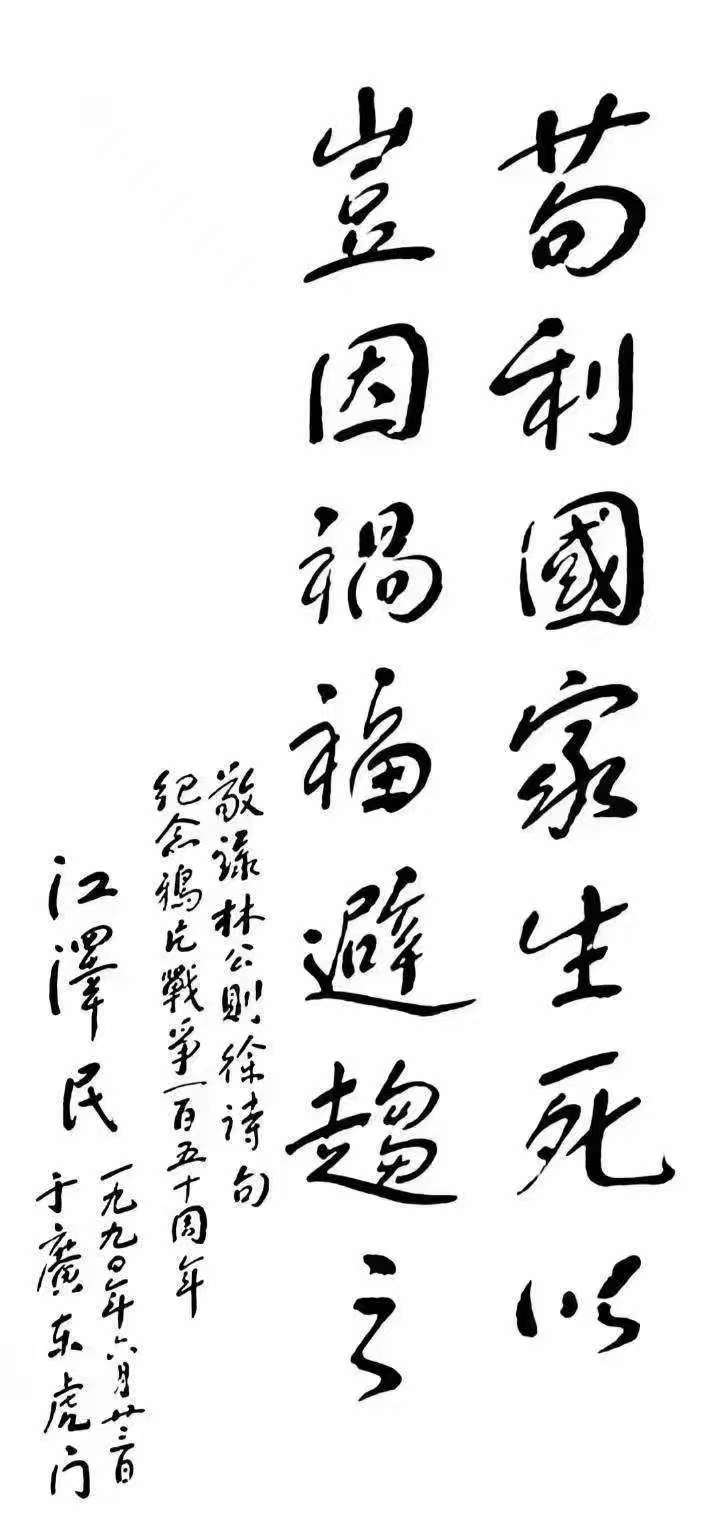 苟利國家生死以
豈因禍福避趨之
敬録林公則徐詩句
纪念鴉片戰爭一百五十周年
江澤民
一九九〇年六月廿三日
于廣东虎门